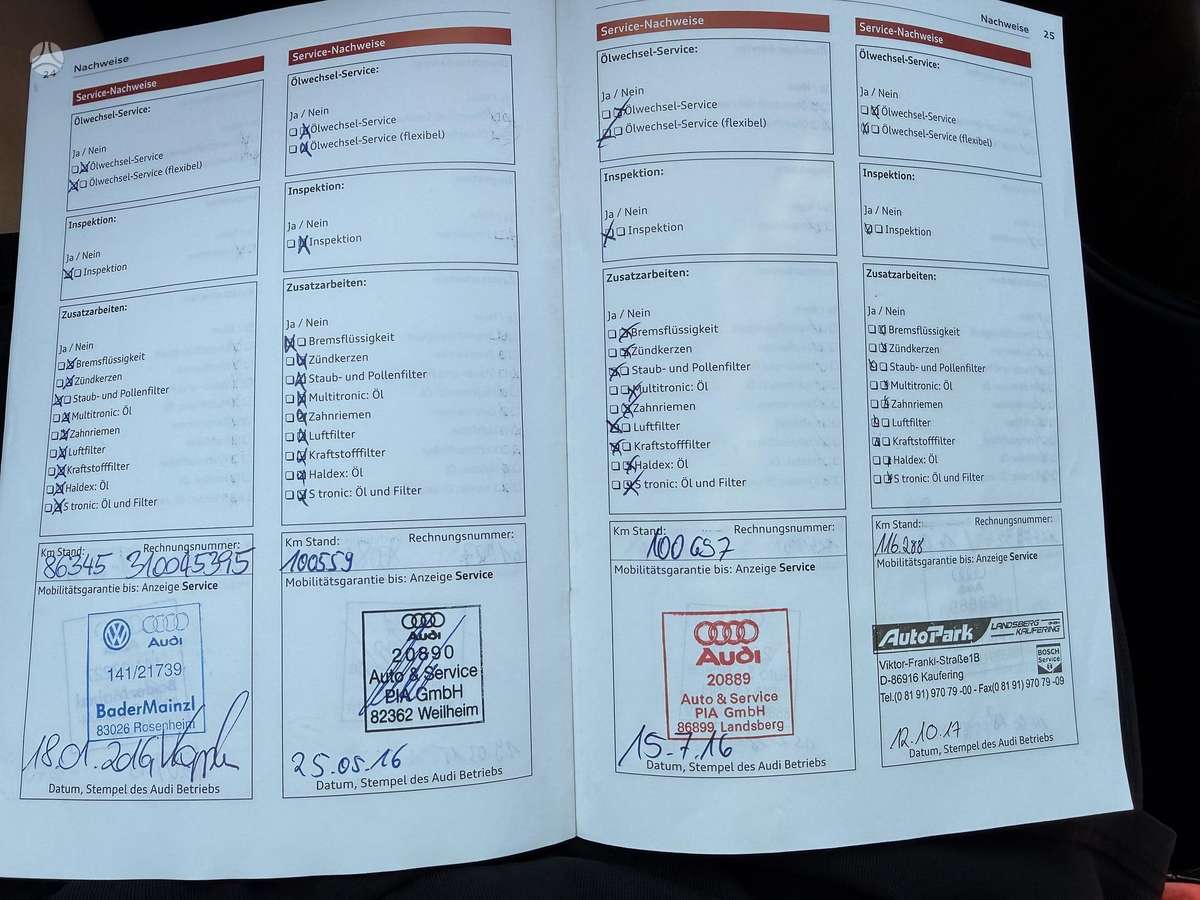 24 Nachweise
Service-Nachweise
Ölwechsel-Service:
Ja / Nein
Ölwechsel-Service
Ölwechsel-Service (flexibel)
Inspektion:
Ja / Nein
Inspektion
Zusatzarbeiten:
Ja / Nein
Bremsflüssigkeit
Zündkerzen
Staub- und Pollenfilter
Multitronic: Öl
Zahnriemen
Luftfilter
Kraftstofffilter
Haldex: Öl
S tronic: Öl und Filter
Km Stand: Rechnungsnummer:
86345 310045395
Mobilitätsgarantie bis: Anzeige Service
Audi
141/21739
BaderMainzl
83026 Rosenheim
18.01.2016
Datum, Stempel des Audi Betriebs
Service-Nachweise
Ölwechsel-Service:
Ja / Nein
Ölwechsel-Service
Ölwechsel-Service (flexibel)
Inspektion:
Ja / Nein
Inspektion
Zusatzarbeiten:
Ja / Nein
Bremsflüssigkeit
Zündkerzen
Staub- und Pollenfilter
Multitronic: Öl
Zahnriemen
Luftfilter
Kraftstofffilter
Haldex: Öl
S tronic: Öl und Filter
Km Stand: Rechnungsnummer:
100559
Mobilitätsgarantie bis: Anzeige Service
Audi
20890
Auto & Service
PIA GmbH
82362 Weilheim
25.05.16
Datum, Stempel des Audi Betriebs
Nachweise 25
Service-Nachweise
Ölwechsel-Service:
Ja / Nein
Ölwechsel-Service
Ölwechsel-Service (flexibel)
Inspektion:
Ja / Nein
Inspektion
Zusatzarbeiten:
Ja / Nein
Bremsflüssigkeit
Zündkerzen
Staub- und Pollenfilter
Multitronic: Öl
Zahnriemen
Luftfilter
Kraftstofffilter
Haldex: Öl
S tronic: Öl und Filter
Km Stand: Rechnungsnummer:
100657
Mobilitätsgarantie bis: Anzeige Service
Audi
20889
Auto & Service
PIA GmbH
86899 Landsberg
15.7.16
Datum, Stempel des Audi Betriebs
Service-Nachweise
Ölwechsel-Service:
Ja / Nein
Ölwechsel-Service
Ölwechsel-Service (flexibel)
Inspektion:
Ja / Nein
Inspektion
Zusatzarbeiten:
Ja / Nein
Bremsflüssigkeit
Zündkerzen
Staub- und Pollenfilter
Multitronic: Öl
Zahnriemen
Luftfilter
Kraftstofffilter
Haldex: Öl
S tronic: Öl und Filter
Km Stand: Rechnungsnummer:
116.288
Mobilitätsgarantie bis: Anzeige Service
AutoPark LANDSBERG KAUFERING
Viktor-Frankl-Straße1B
D-86916 Kaufering
BOSCH Service
Tel.(0 81 91) 970 79 -00 - Fax(0 81 91) 970 79 -09
12.10.17
Datum, Stempel des Audi Betriebs